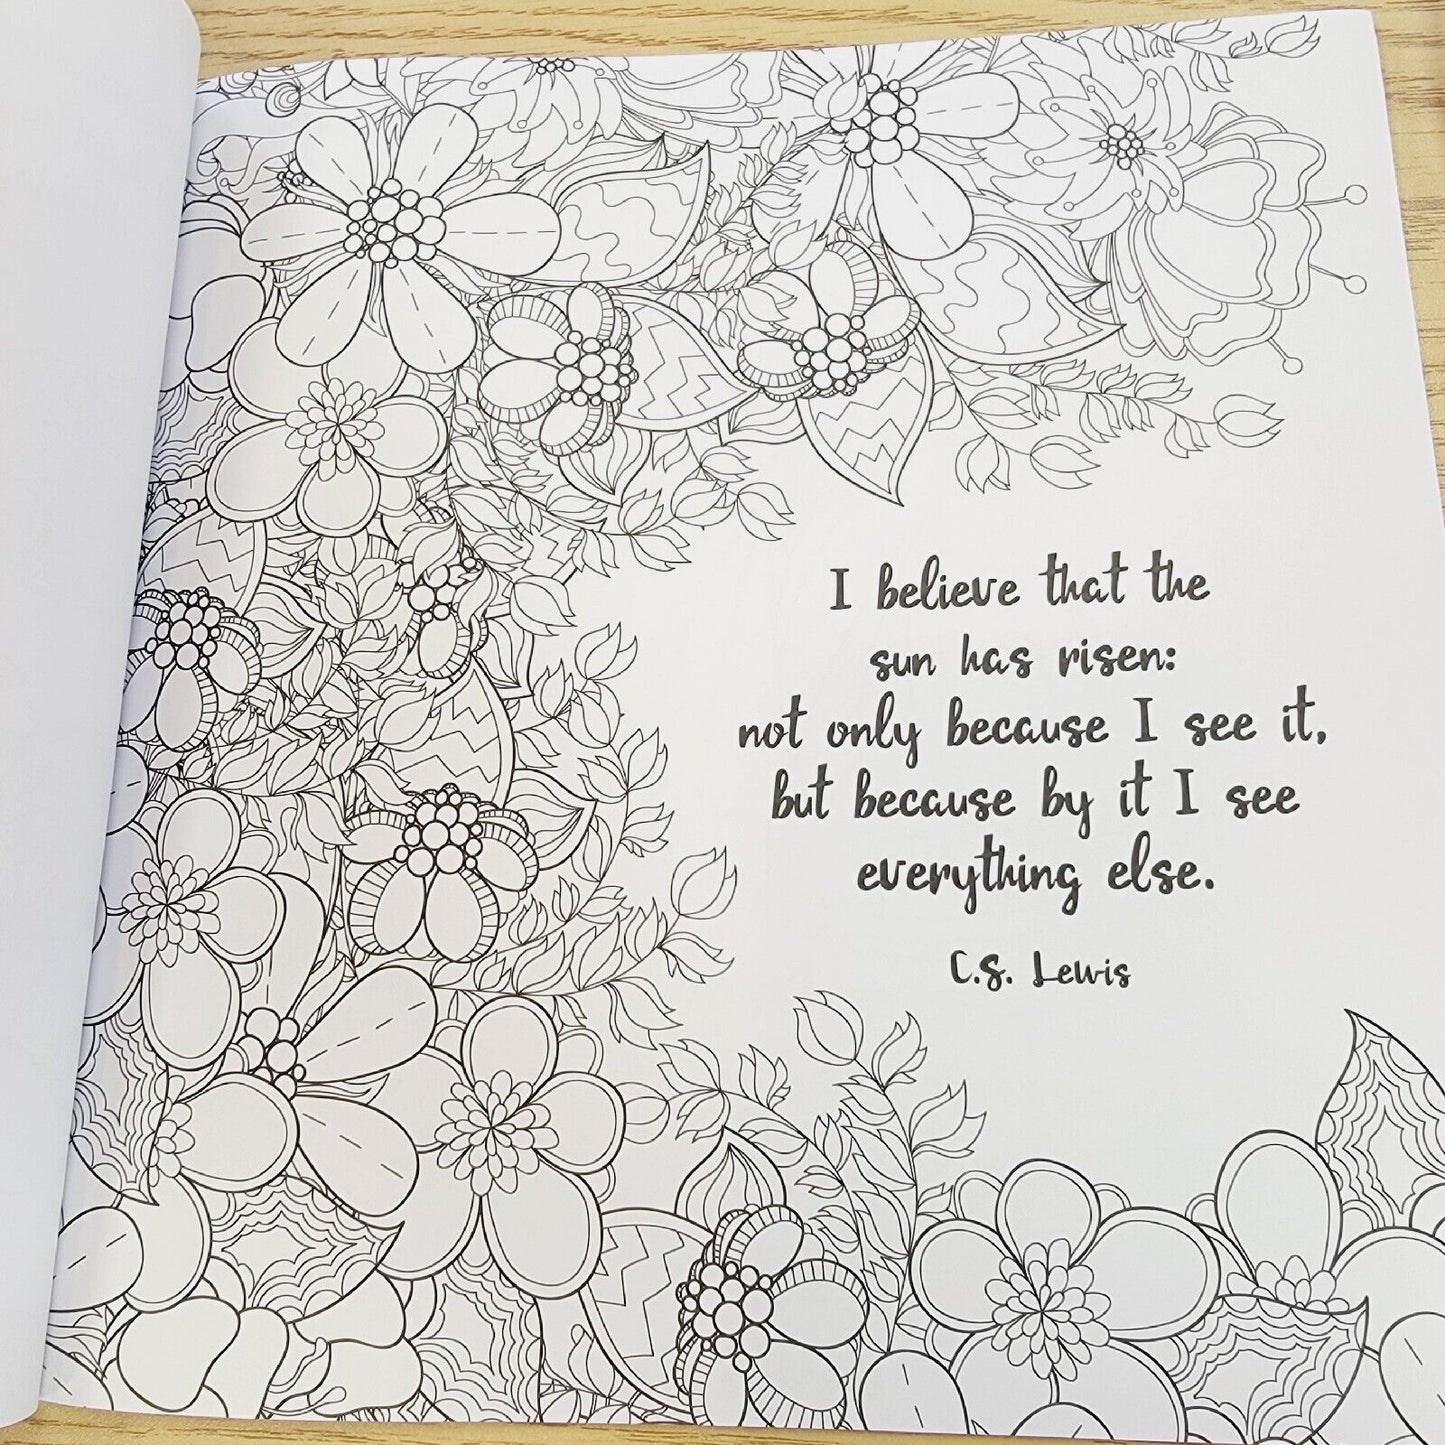 I believe that the
sun has risen:
not only because I see it,
but because by it I see
everything else.
C.S. Lewis